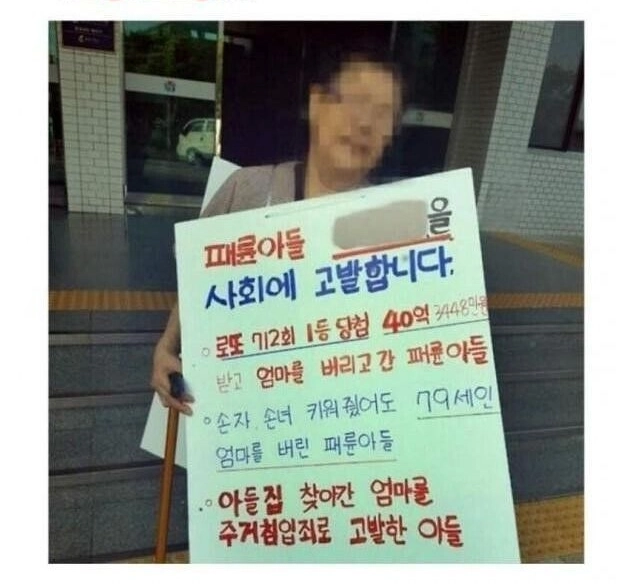 패륜아들 을
사회에 고발합니다.
○ 로또 712회 1등 당첨 40억 3448만원
받고 엄마를 버리고 간 패륜아들
○ 손자. 손녀 키워줬어도 79세인
엄마를 버린 패륜아들
○ 아들집 찾아간 엄마를
주거침입죄로 고발한 아들